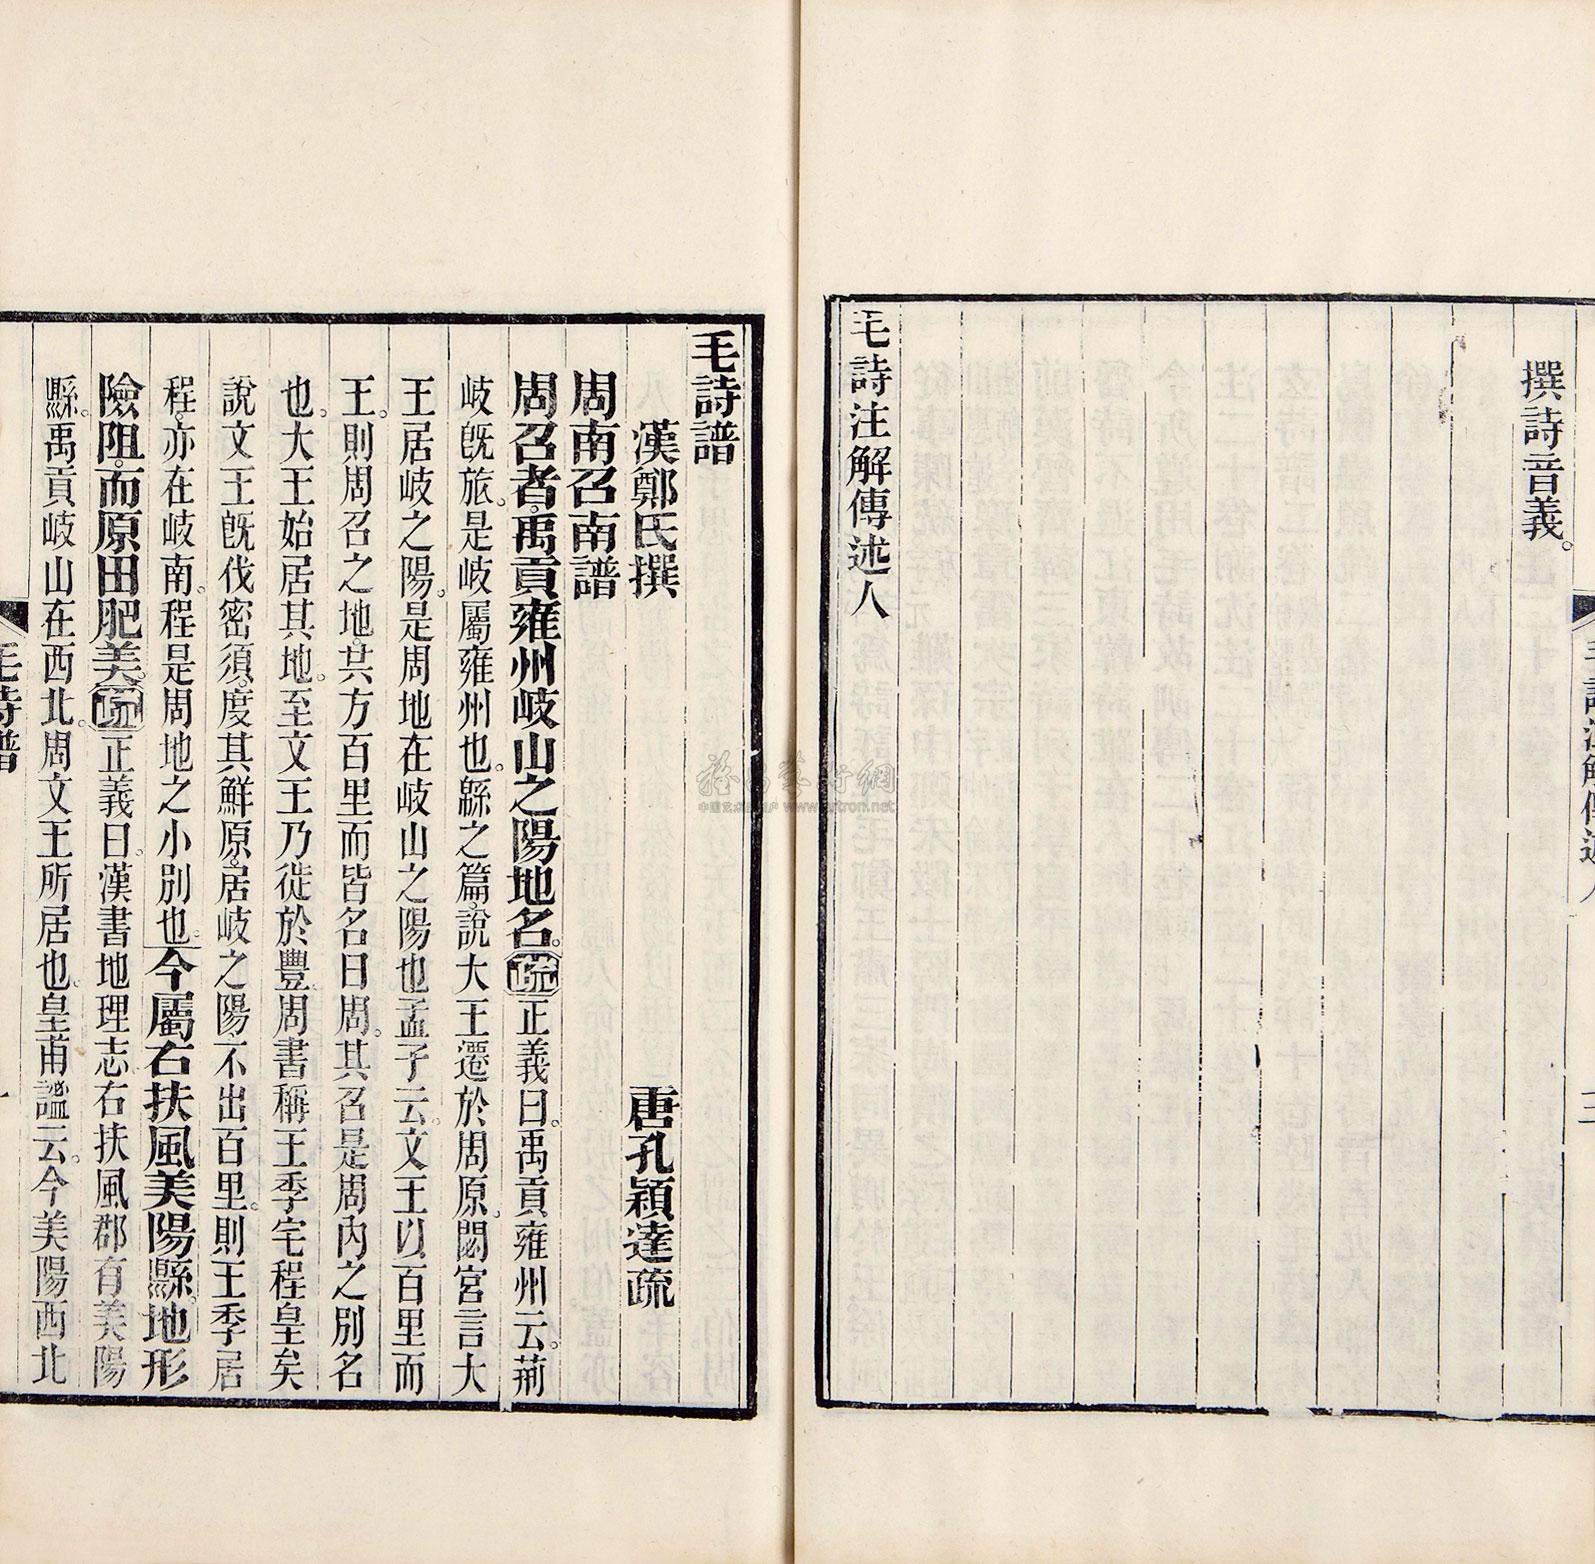 撰詩音義。
毛詩注解傳述人
毛詩注解傳述人
三
毛詩譜
漢鄭氏撰 唐孔穎達疏
周南召南譜
周召者。禹貢雍州岐山之陽地名。疏正義曰。禹貢雍州云。荊
岐旣旅。是岐屬雍州也。緜之篇。說大王遷於周原。閟宮言大
王居岐之陽。是周地在岐山之陽也孟子云。文王以百里而
王。則周召之地。其方百里而皆名曰周。其召是周內之別名
也。大王始居其地。至文王乃徙於豐。周書稱王季宅程皇矣
說文王旣伐密須。度其鮮原。居岐之陽。不出百里。則王季居
程。亦在岐南。程是周地之小別也。今屬右扶風美陽縣。地形
險阻。而原田肥美。疏正義曰。漢書地理志。右扶風郡有美陽
縣。禹貢岐山在西北。周文王所居也。皇甫謐云。今美陽西北
毛詩譜
一